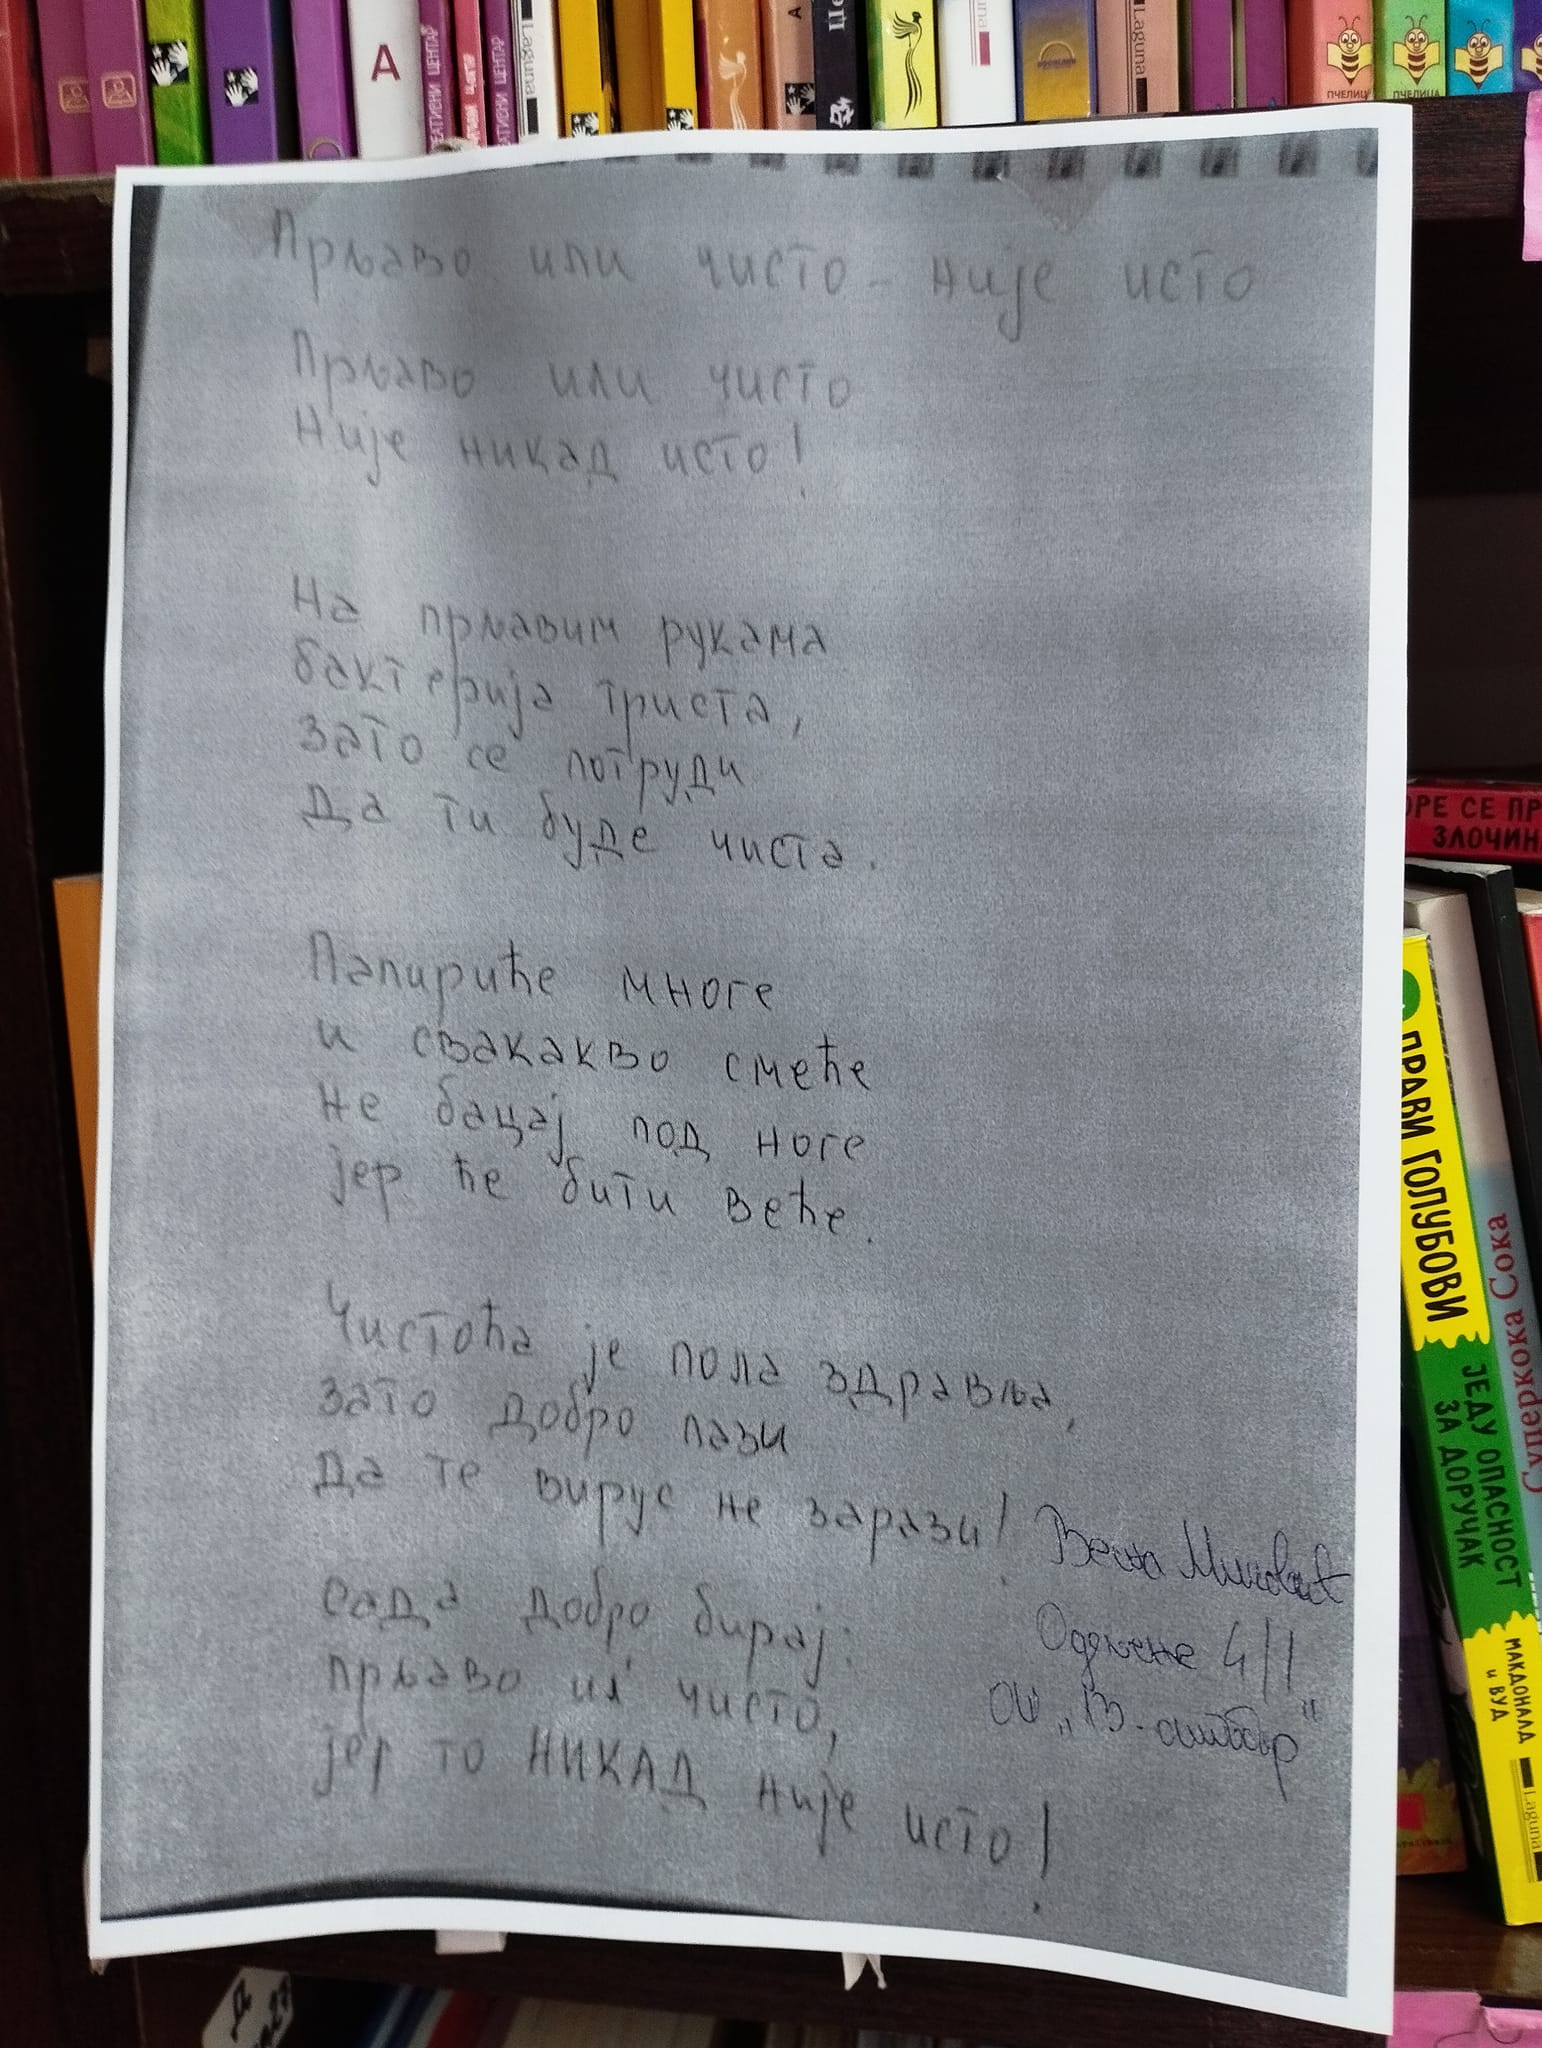 А
Laguna
Laguna
ПЧЕЛИЦА
ПЧЕЛИЦА
Прљаво или чисто - није исто
Прљаво или чисто
Није никад исто!
На прљавим рукама
бактерија триста,
зато се потруди
Да ти буде чиста.
Папириће многе
и свакакво смеће
не бацај под ноге
јер ће бити веће.
Чистоћа је пола здравља,
зато добро пази
Да те вирус не зарази!
Сада добро бирај:
прљаво ил' чисто,
јер то НИКАД није исто!
Весна
Одељење 4/1
ОШ
ПРАВИ ГОЛУБОВИ
ЈЕДУ ОПАСНОСТ
ЗА ДОРУЧАК
МАКДОНАЛД
и ВУД
Laguna
Суперкока Сока